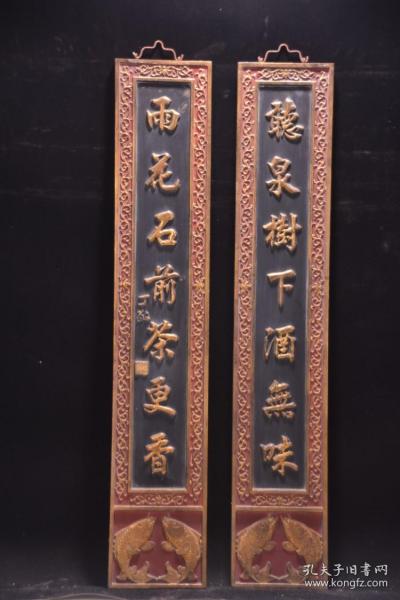 聽泉樹下酒無味
雨花石前茶更香
孔夫子旧书网
www.kongfz.com